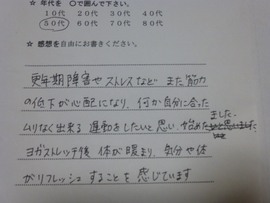 ☆ 年代を 〇で囲んで下さい。
10代 20代 30代 40代
50代 60代 70代 80代
☆ 感想を自由にお書きください。
更年期障害や ストレスなど また筋力
の低下が心配になり、何か自分に合った
ムリなく出来る 運動をしたいと思い、始めました。
ヨガストレッチ後 体が暖まり、気分や体
がリフレッシュすることを 感じています